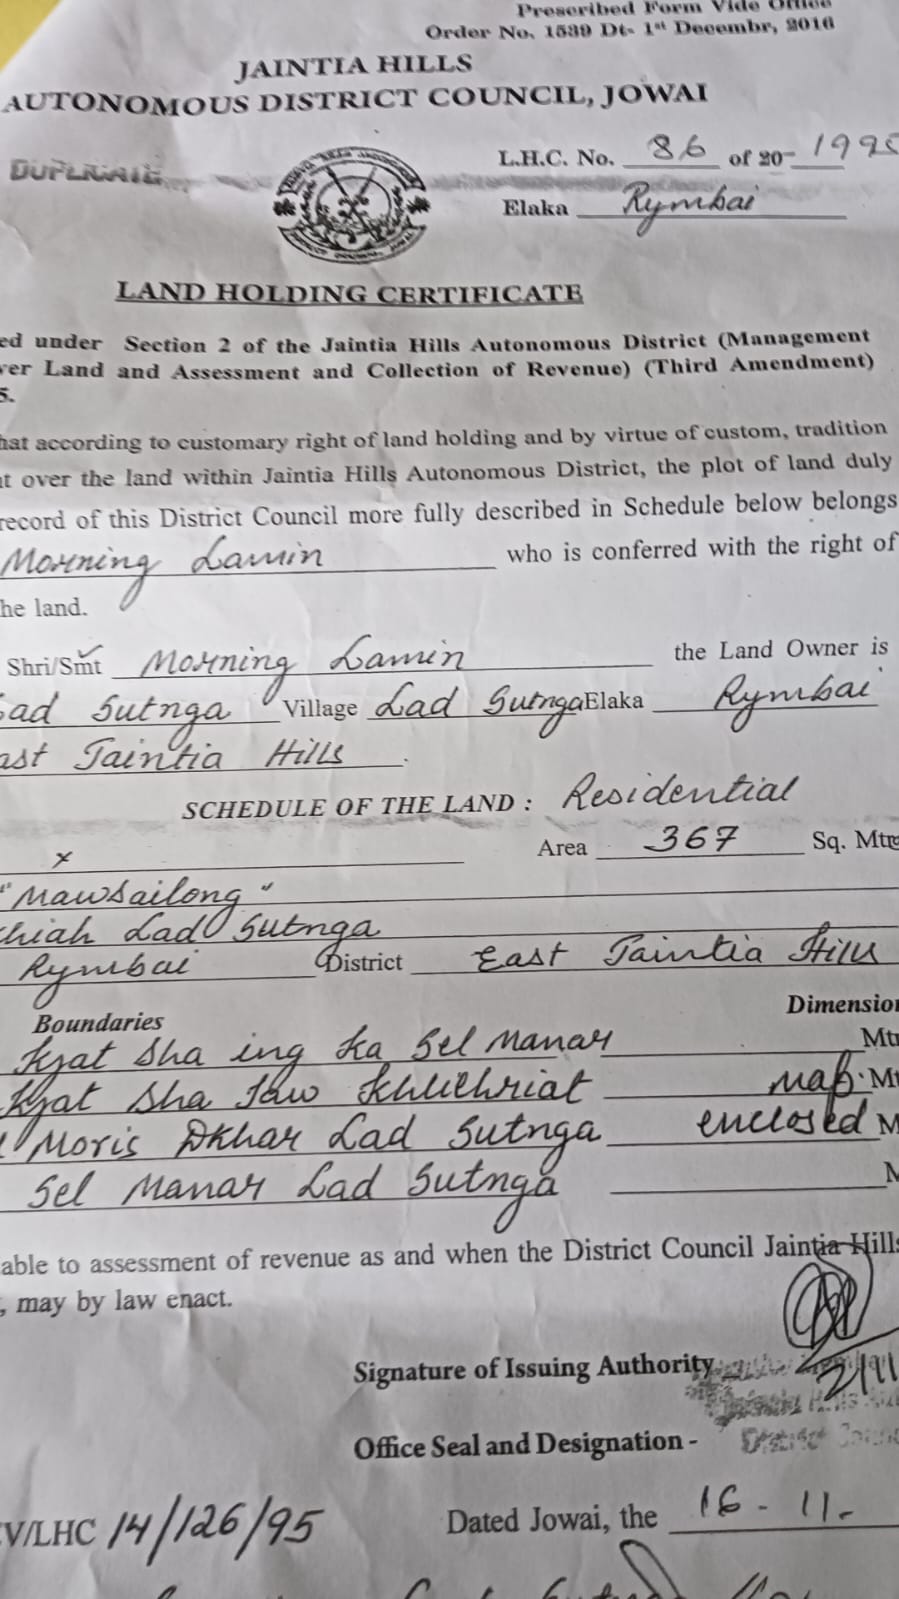 Prescribed Form Vide Office
Order No. 1539 Dt- 1st Decembr, 2016
JAINTIA HILLS
AUTONOMOUS DISTRICT COUNCIL, JOWAI
DUPLICATE
L.H.C. No. 86 of 20- 1995
Elaka Rymbai
LAND HOLDING CERTIFICATE
ed under Section 2 of the Jaintia Hills Autonomous District (Management
ver Land and Assessment and Collection of Revenue) (Third Amendment)
5.
hat according to customary right of land holding and by virtue of custom, tradition
nt over the land within Jaintia Hills Autonomous District, the plot of land duly
record of this District Council more fully described in Schedule below belongs
Morning Lamin who is conferred with the right of
he land.
Shri/Smt Morning Lamin the Land Owner is
Lad Sutnga Village Lad Sutnga Elaka Rymbai
ast Jaintia Hills.
SCHEDULE OF THE LAND : Residential
x Area 367 Sq. Mtr
"Mawsailong"
Lad Sutnga
Rymbai District East Jaintia Hills
Boundaries Dimension
sha ing ka Sel Manar Mt
sha Khliehriat map. M
Moris Dkhar Lad Sutnga enclosed M
Sel Manar Lad Sutnga M
able to assessment of revenue as and when the District Council Jaintia Hills
, may by law enact.
Signature of Issuing Authority
Office Seal and Designation -
District
V/LHC 14/126/95 Dated Jowai, the 16 - 11-